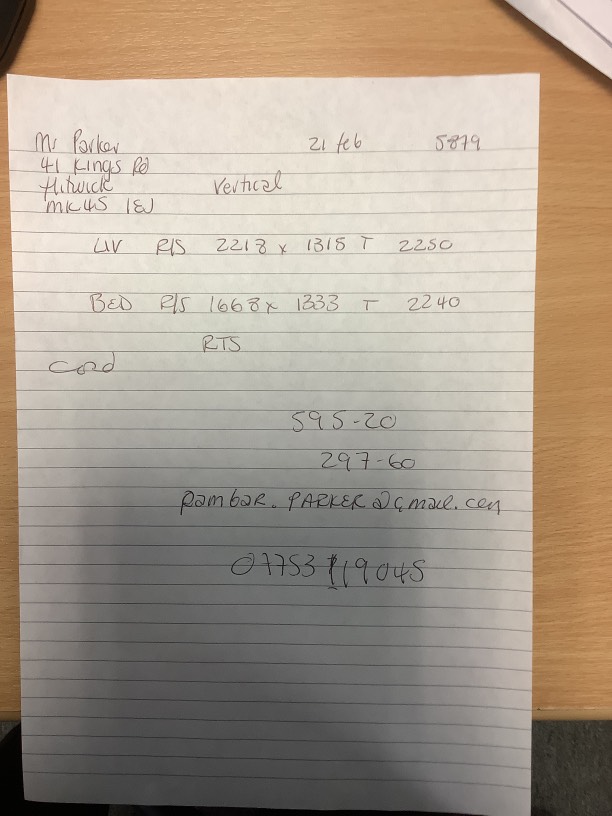 Mr Parker 21 feb 5879
41 Kings Rd
flitwick vertical
MK45 1EJ
LIV R/S 2218 x 1315 T 2250
BED R/S 1668 x 1333 T 2240
RTS
cord
595-20
297-60
PARKER@gmail.com
07753 119045